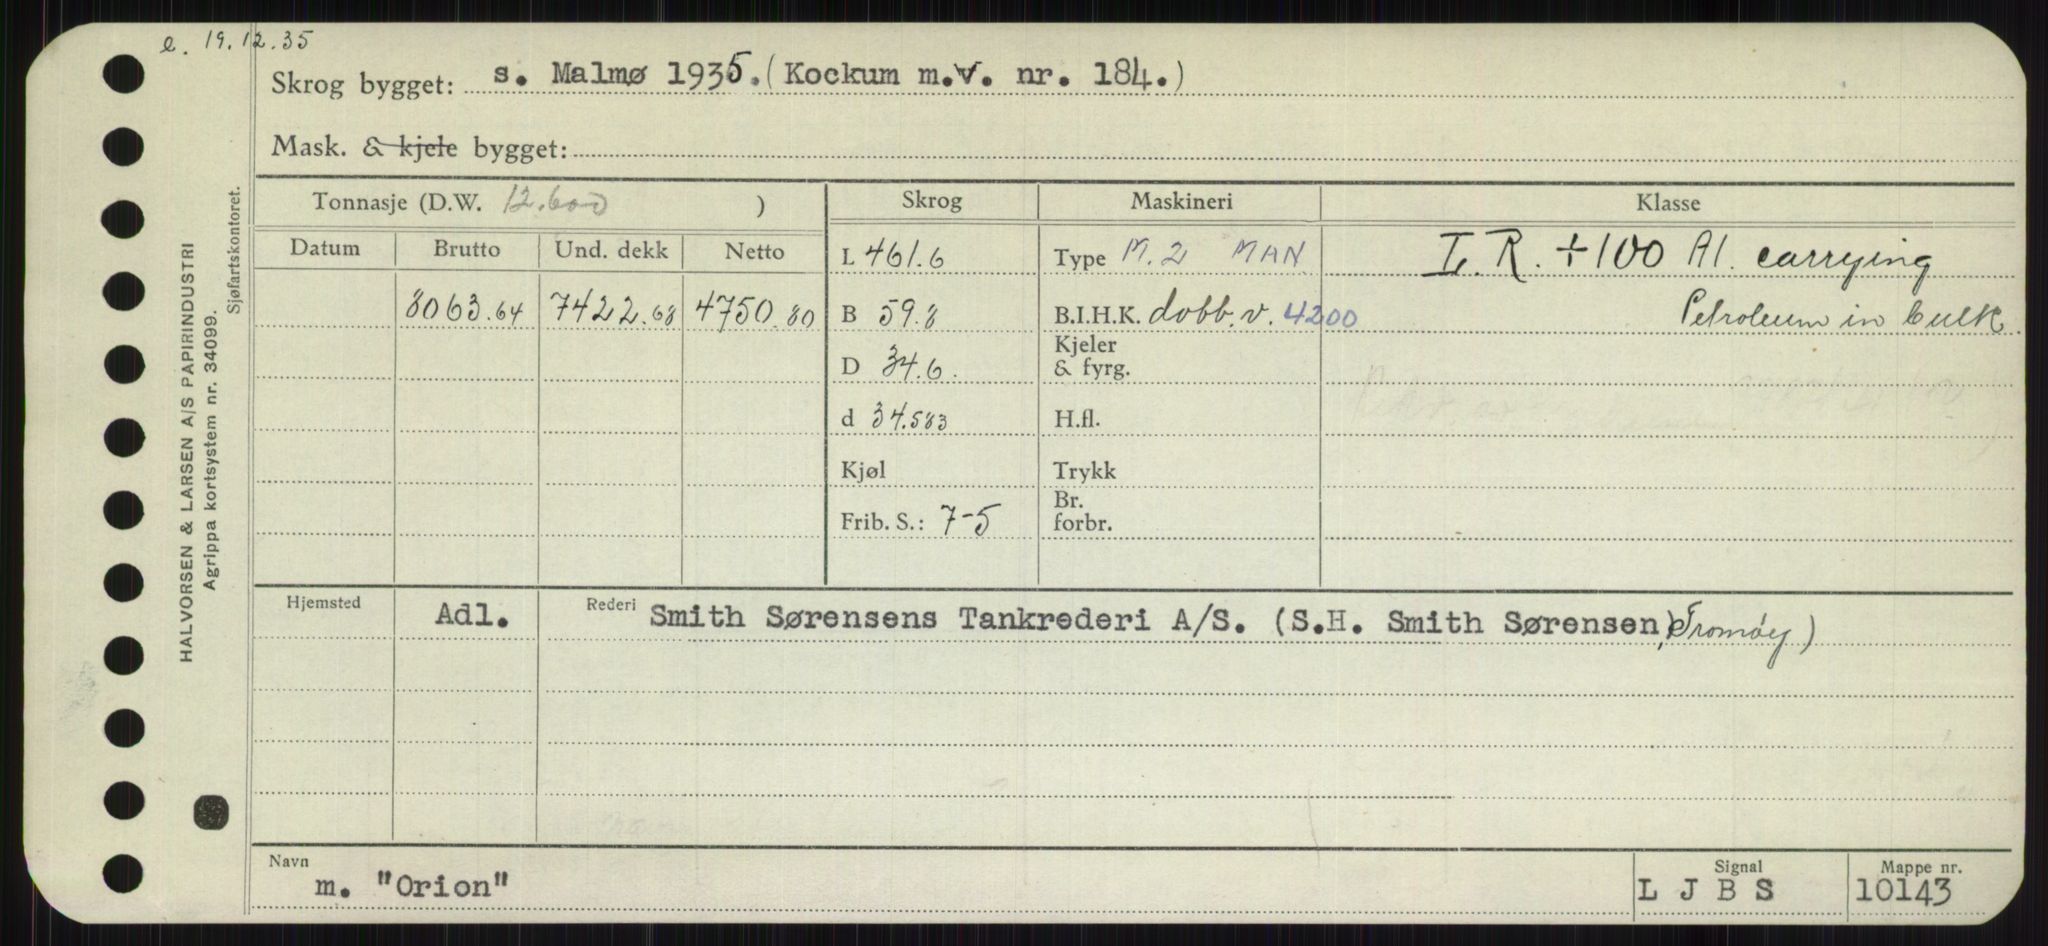 e. 19.12.35
Skrog bygget: s. Malmø 1935. (Kockum m.v. nr. 184.)
Mask. & kjele bygget:
Tonnasje (D.W. 12.600 ) Skrog Maskineri Klasse
Datum Brutto Und. dekk Netto L 461.6 Type M. 2 MAN L. R. +100 A1. carrying
8063.64 7422.68 4750.80 B 59.8 B.I.H.K. dobb. v. 4200 Petroleum in bulk.
D 34.6. Kjeler
& fyrg.
d 34.583 H.fl.
Kjøl Trykk
Frib. S.: 7-5 Br.
forbr.
Hjemsted Adl. Rederi Smith Sørensens Tankrederi A/S. (S.H. Smith Sørensen, Tromøy)
Navn m. "Orion" Signal L J B S Mappe nr. 10143
HALVORSEN & LARSEN A/S PAPIRINDUSTRI
Agrippa kortsystem nr. 34099.
Sjøfartskontoret.